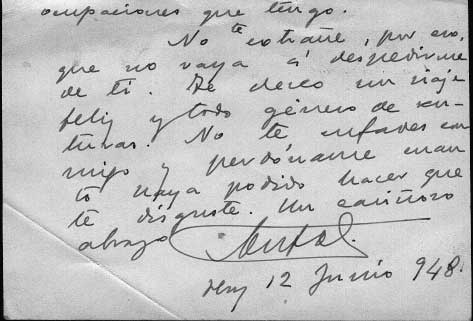 ocupaciones que tengo.
No te extrañe, por eso,
que no vaya á despedirme
de ti. Te deseo un viaje
feliz y todo género de ven-
turas. No te enfades con-
migo y perdóname cuan
to haya podido hacer que
te disguste. Un cariñoso
abrazo
12 Junio 948.